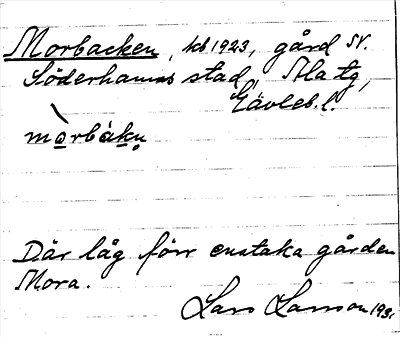 Morbacken, kb 1923, gård SV.
Söderhamns stad, Ala tg,
Gävleb. l.
mòrbàkn̥
Där låg förr enstaka gården
Mora.
Lars Larsson 193